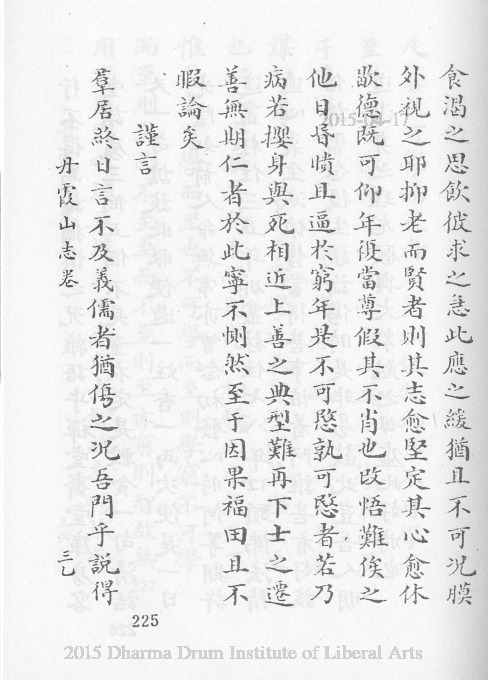 食渴之思飲彼求之急此應之緩猶且不可況膜
外視之耶抑老而賢者則其志愈堅定其心愈休
歇德既可仰年復當尊假其不肖也改悟難俟之
他日昏憒且逼於窮年是不可愍孰可愍者若乃
病若攖身與死相近上善之典型難再下士之遷
善無期仁者於此寧不惻然至于因果福田且不
暇論矣
謹言
羣居終日言不及義儒者猶傷之况吾門乎說得
丹霞山志卷 三乙
225
2015-04-17
2015 Dharma Drum Institute of Liberal Arts